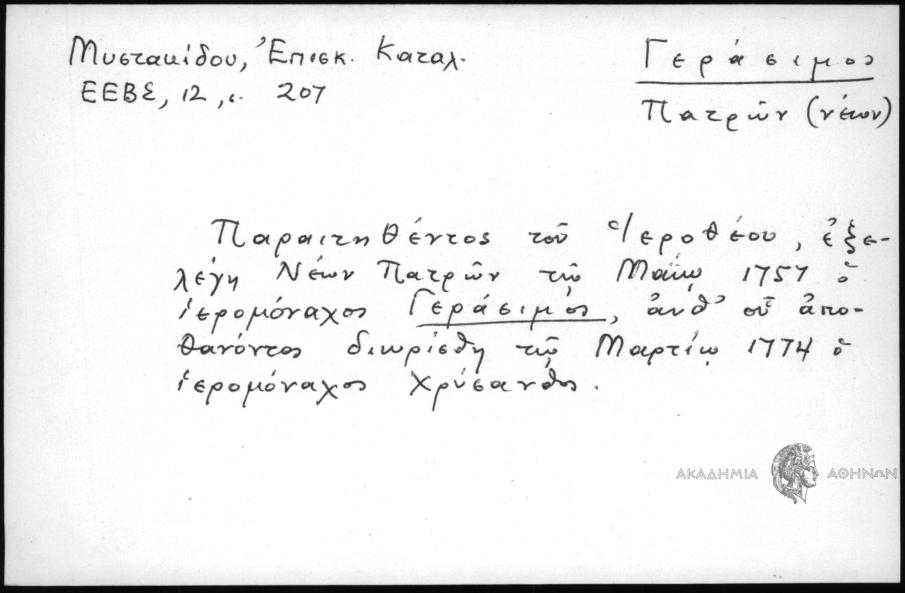 Μυστακίδου, Ἐπισκ. Καταλ.
ΕΕΒΣ, 12, σ. 207
Γεράσιμος
Πατρῶν (νέων)
Παραιτηθέντος τοῦ Ἱεροθέου, ἐξε-
λέγη Νέων Πατρῶν τῷ Μαΐῳ 1757 ὁ
ἱερομόναχος Γεράσιμος, ἀνθ' οὗ ἀπο-
θανόντος διωρίσθη τῷ Μαρτίῳ 1774 ὁ
ἱερομόναχος Χρύσανθος.
ΑΚΑΔΗΜΙΑ ΑΘΗΝΩΝ